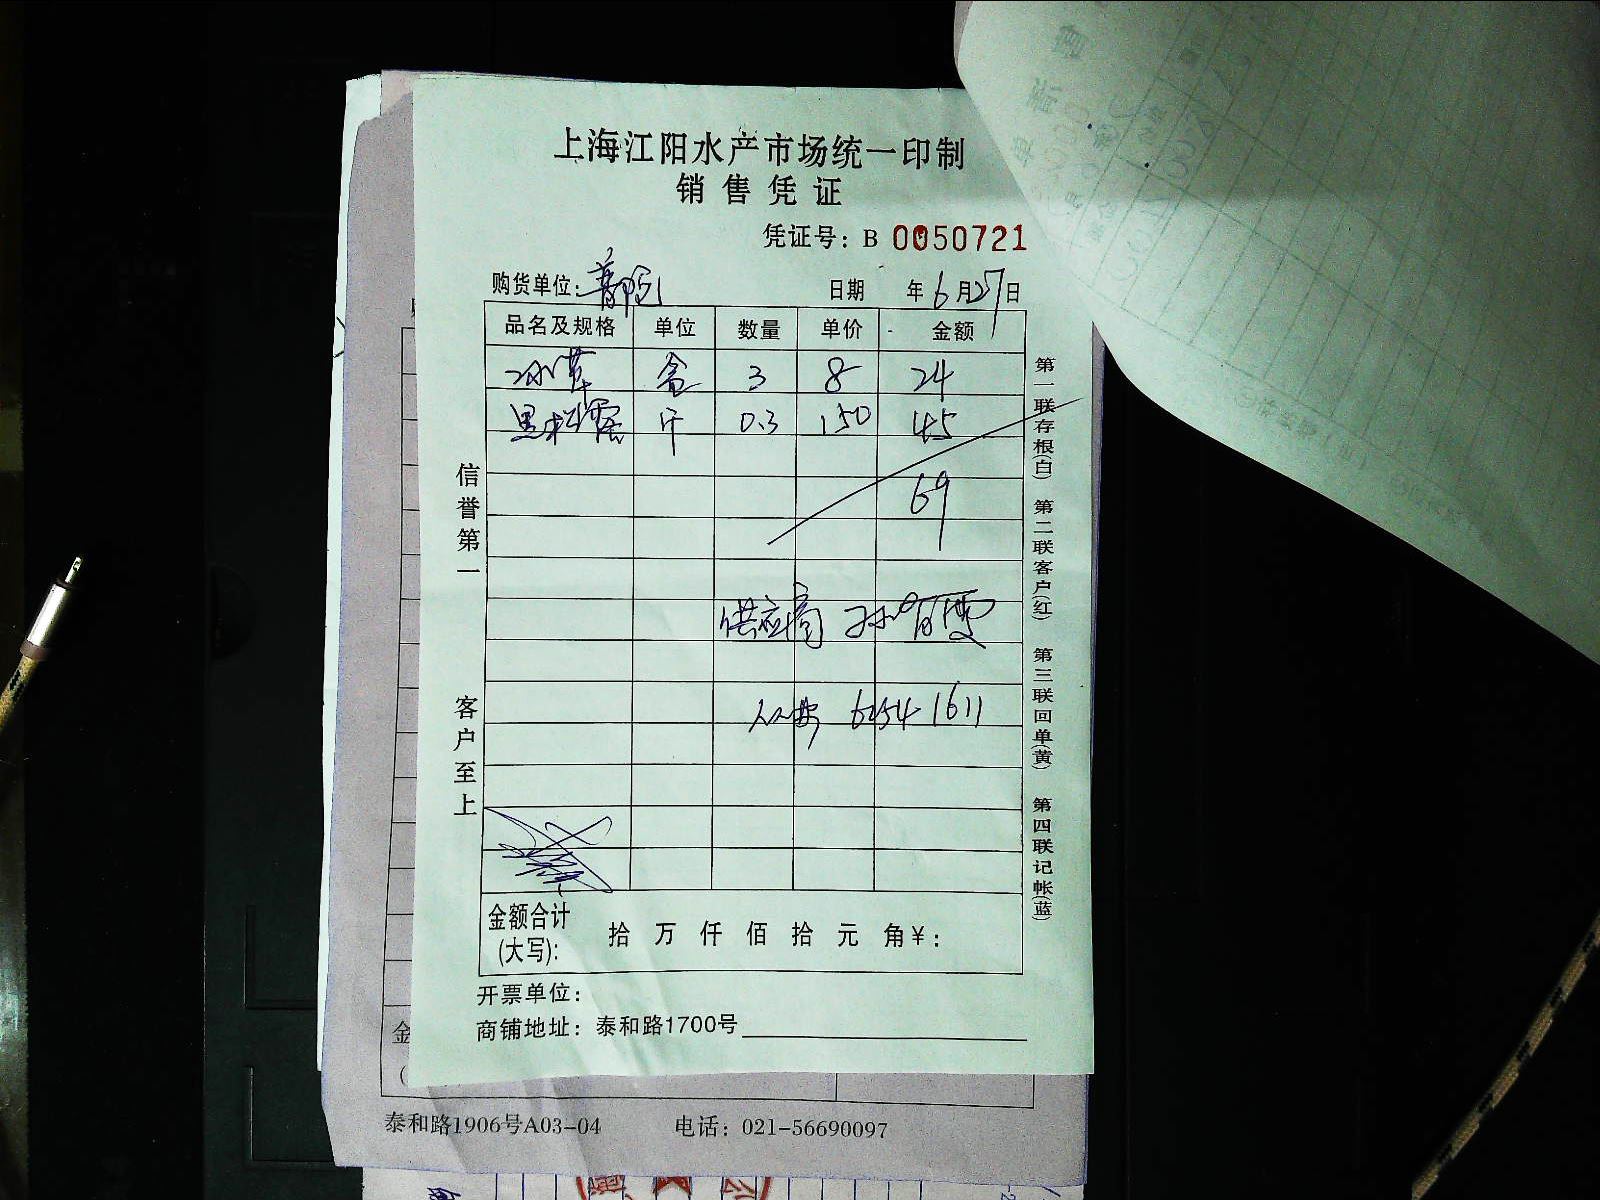 上海江阳水产市场统一印制
销售凭证
凭证号：B 0050721
购货单位：
日期 年6月27日
品名及规格 单位 数量 单价 金额
冰草 盒 3 8 24
黑松露 斤 0.3 150 45
69
供应商 孙
6254 1611
信誉第一
客户至上
第一联存根(白) 第二联客户(红) 第三联回单(黄) 第四联记帐(蓝)
金额合计
(大写)： 拾 万 仟 佰 拾 元 角￥：
开票单位：
商铺地址：泰和路1700号
金
泰和路1906号A03-04 电话：021-56690097